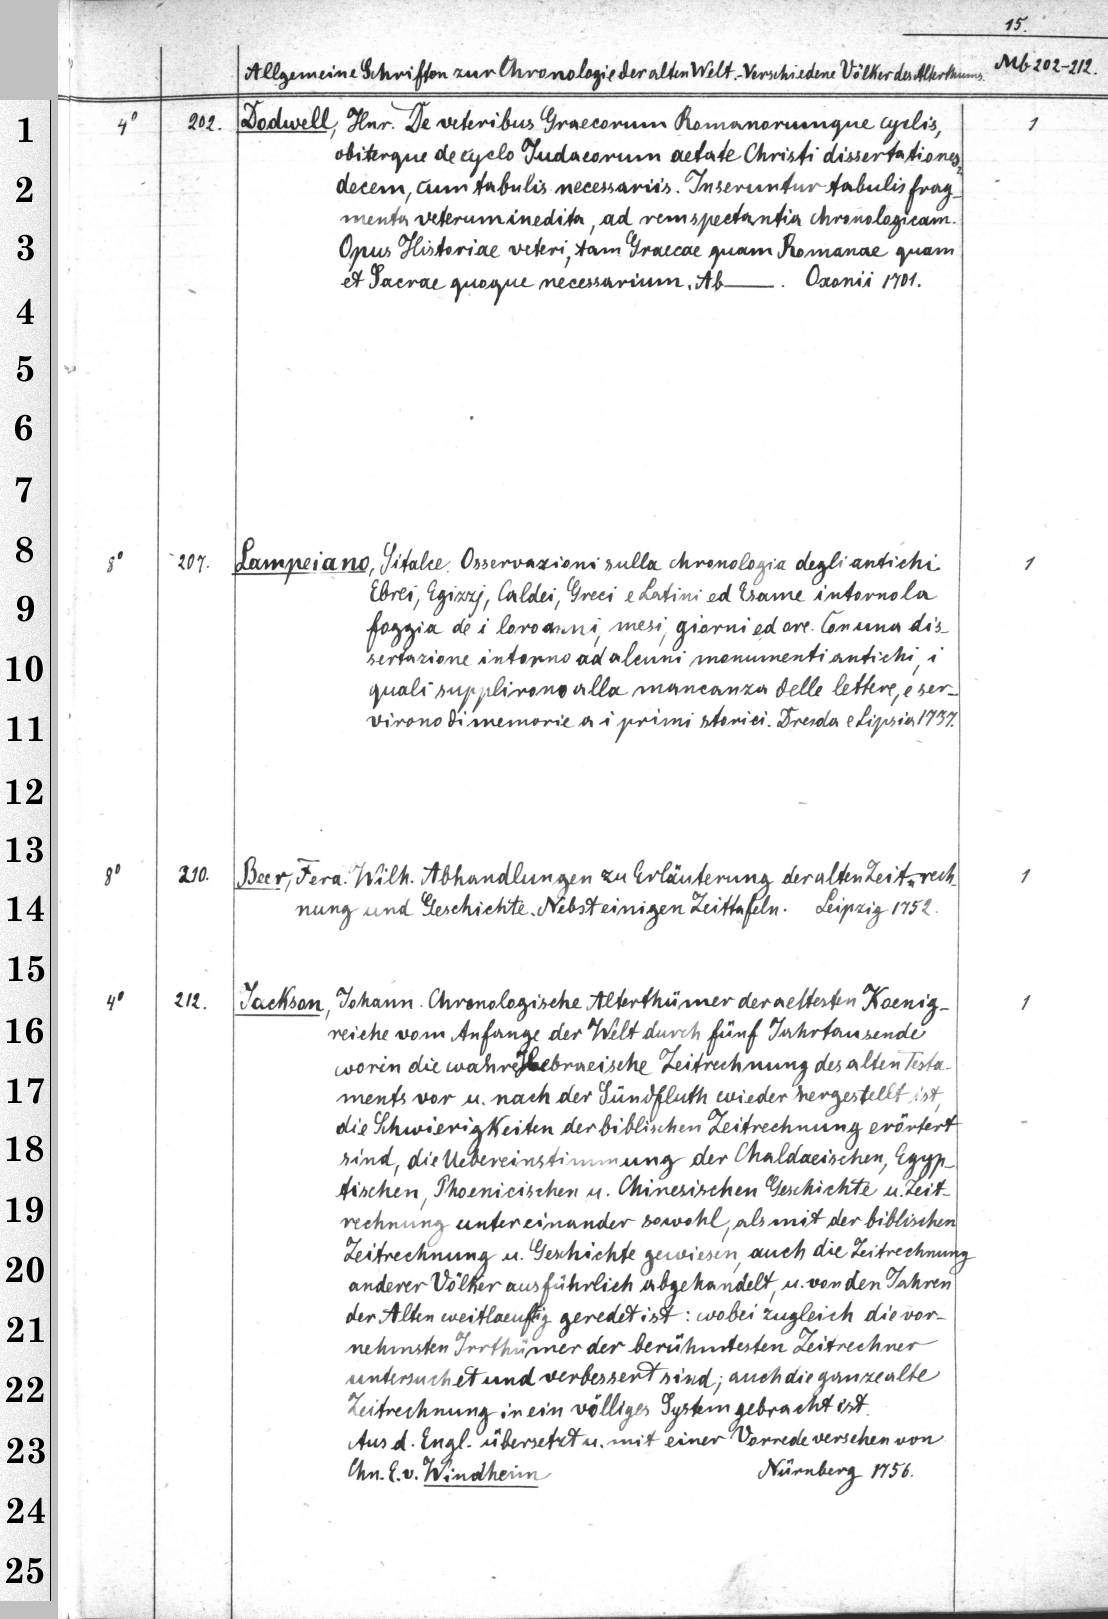 15.
Allgemeine Schriften zur Chronologie der alten Welt. - Verschiedene Völker des Alterthums. Mb 202-212.
1
4° 202. Dodwell, Hnr. De veteribus Graecorum Romanorumque cyclis, 1
obiterque de cyclo Judaeorum aetate Christi dissertationes
2
decem, cum tabulis necessariis. Inseruntur tabulis frag-
menta veterum inedita, ad rem spectantia chronologicam.
3
Opus Historiae veteri, tam Graecae quam Romanae quam
et Sacrae quoque necessarium. Ab ——. Oxonii 1701.
4
5
6
7
8
8° 207. Lampeiano, Sitalce. Osservazioni sulla chronologia degli antichi 1
9
Ebrei, Egizzj, Caldei, Greci e Latini ed Esame intorno la
foggia de i loro anni, mesi, giorni ed ore. Con una dis-
10
sertazione intorno ad alcuni monumenti antichi, i
quali supplirono alla mancanza delle lettere, e ser-
11
virono di memorie a i primi storici. Dresda e Lipsia 1737.
12
13
8° 210. Beer, Ferd. Wilh. Abhandlungen zu Erläuterung der alten Zeit-rech- 1
14
nung und Geschichte. Nebst einigen Zeittafeln. Leipzig 1752.
15
4° 212. Jackson, Johann. Chronologische Alterthümer der aeltesten Koenig- 1
16
reiche vom Anfange der Welt durch fünf Jahrtausende
worin die wahre Hebraeische Zeitrechnung des alten Testa-
17
ments vor u. nach der Sündfluth wieder hergestellt ist,
die Schwierigkeiten der biblischen Zeitrechnung erörtert
18
sind, die Uebereinstimmung der Chaldaeischen, Egyp-
tischen, Phoenicischen u. Chinesischen Geschichte u. Zeit-
19
rechnung untereinander sowohl, als mit der biblischen
Zeitrechnung u. Geschichte gewiesen, auch die Zeitrechnung
20
anderer Völker ausführlich abgehandelt, u. von den Jahren
der Alten weitlaeuftig geredet ist: wobei zugleich die vor-
21
nehmsten Irrthümer der berühmtesten Zeitrechner
untersuchet und verbessert sind; auch die ganze alte
22
Zeitrechnung in ein völliges System gebracht ist.
Aus d. Engl. übersetzt u. mit einer Vorrede versehen von
23
Chn. E. v. Windheim Nürnberg 1756.
24
25